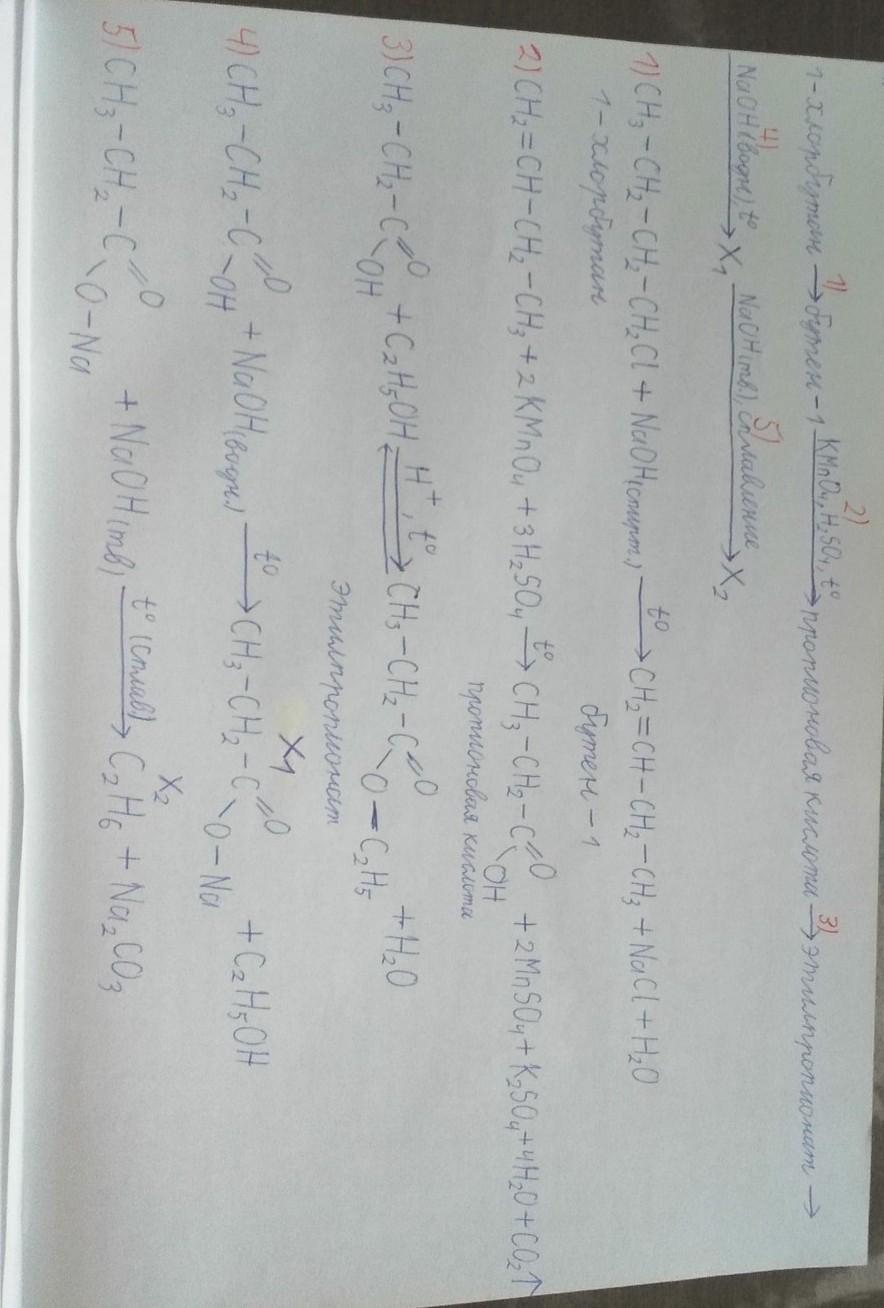 1-хлорбутан 1)→ бутен-1 2) KMnO4, H2SO4, t° → пропионовая кислота 3)→ этилпропионат →
4) NaOH(водн), t° → X1 5) NaOH(тв), сплавление → X2
1) CH3-CH2-CH2-CH2Cl + NaOH(спирт.) t°→ CH2=CH-CH2-CH3 + NaCl + H2O
1-хлорбутан бутен-1
2) CH2=CH-CH2-CH3 + 2KMnO4 + 3H2SO4 t°→ CH3-CH2-C(=O)-OH + 2MnSO4 + K2SO4 + 4H2O + CO2↑
пропионовая кислота
3) CH3-CH2-C(=O)-OH + C2H5OH ⇄ H+, t° CH3-CH2-C(=O)-O-C2H5 + H2O
этилпропионат
X1
4) CH3-CH2-C(=O)-OH + NaOH(водн.) t°→ CH3-CH2-C(=O)-O-Na + C2H5OH
X2
5) CH3-CH2-C(=O)-O-Na + NaOH(тв) t° (сплав)→ C2H6 + Na2CO3